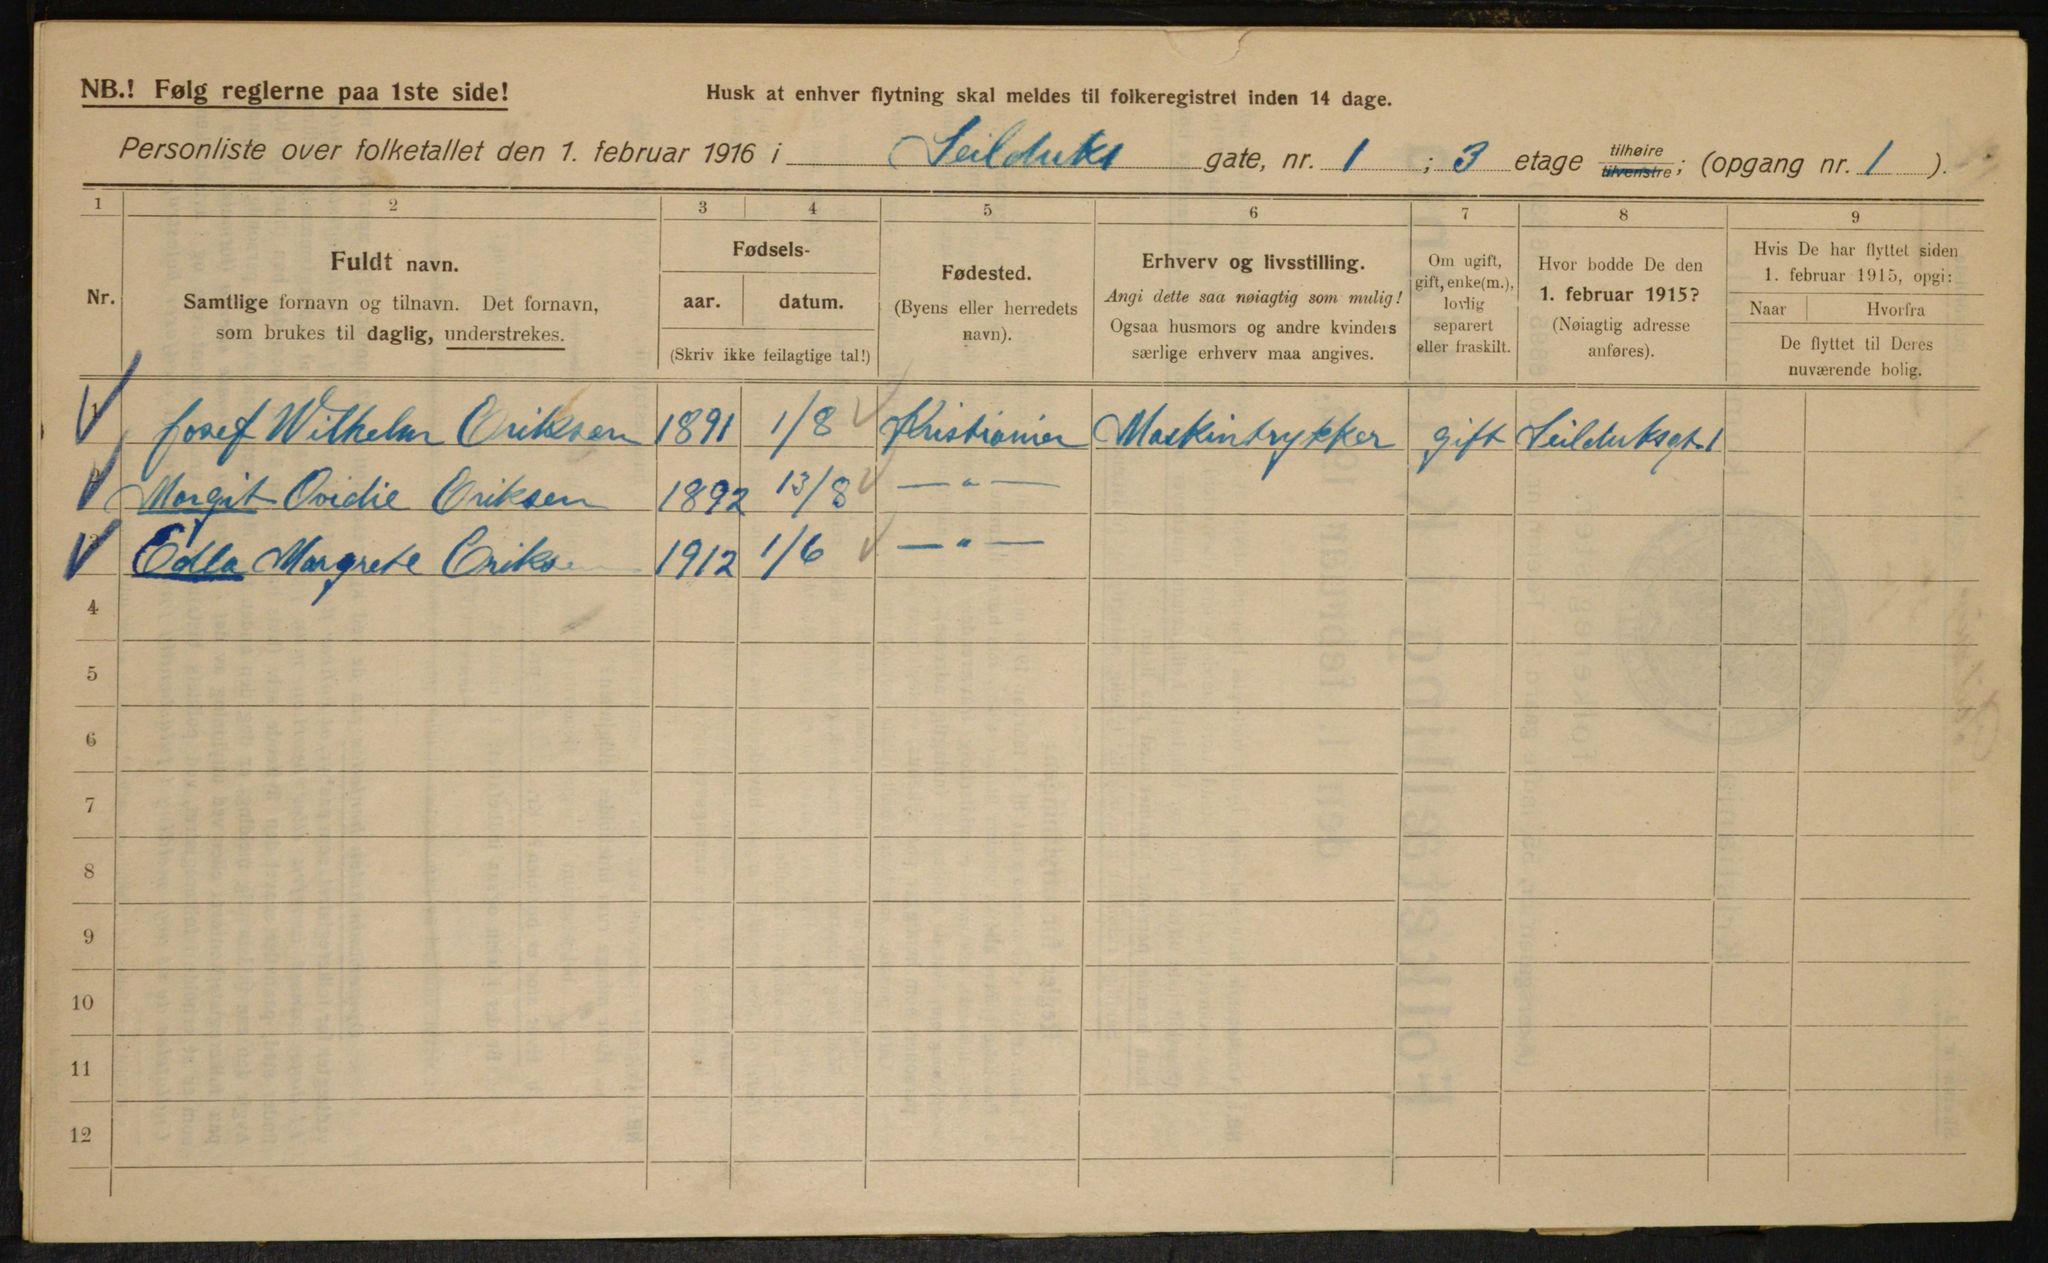 NB.! Følg reglerne paa 1ste side!
Husk at enhver flytning skal meldes til folkeregistret inden 14 dage.
Personliste over folketallet den 1. februar 1916 i Seilduks gate, nr. 1 ; 3 etage tilhøire tilvenstre; (opgang nr. 1 ).
1 2 3 4 5 6 7 8 9
Nr.
Fuldt navn.
Samtlige fornavn og tilnavn. Det fornavn,
som brukes til daglig, understrekes.
Fødsels-
aar. datum.
(Skriv ikke feilagtige tal!)
Fødested.
(Byens eller herredets
navn).
Erhverv og livsstilling.
Angi dette saa nøiagtig som mulig!
Ogsaa husmors og andre kvinders
særlige erhverv maa angives.
Om ugift,
gift, enke(m.),
lovlig
separert
eller fraskilt.
Hvor bodde De den
1. februar 1915?
(Nøiagtig adresse
anføres).
Hvis De har flyttet siden
1. februar 1915, opgi:
Naar Hvorfra
De flyttet til Deres
nuværende bolig.
1 Josef Wilhelm Eriksen 1891 1/8 Kristiania Maskintrykker gift Seilduksgt. 1
2 Margit Ovidie Eriksen 1892 13/8 — " —
3 Edla Margrete Eriksen 1912 1/6 — " —
4
5
6
7
8
9
10
11
12